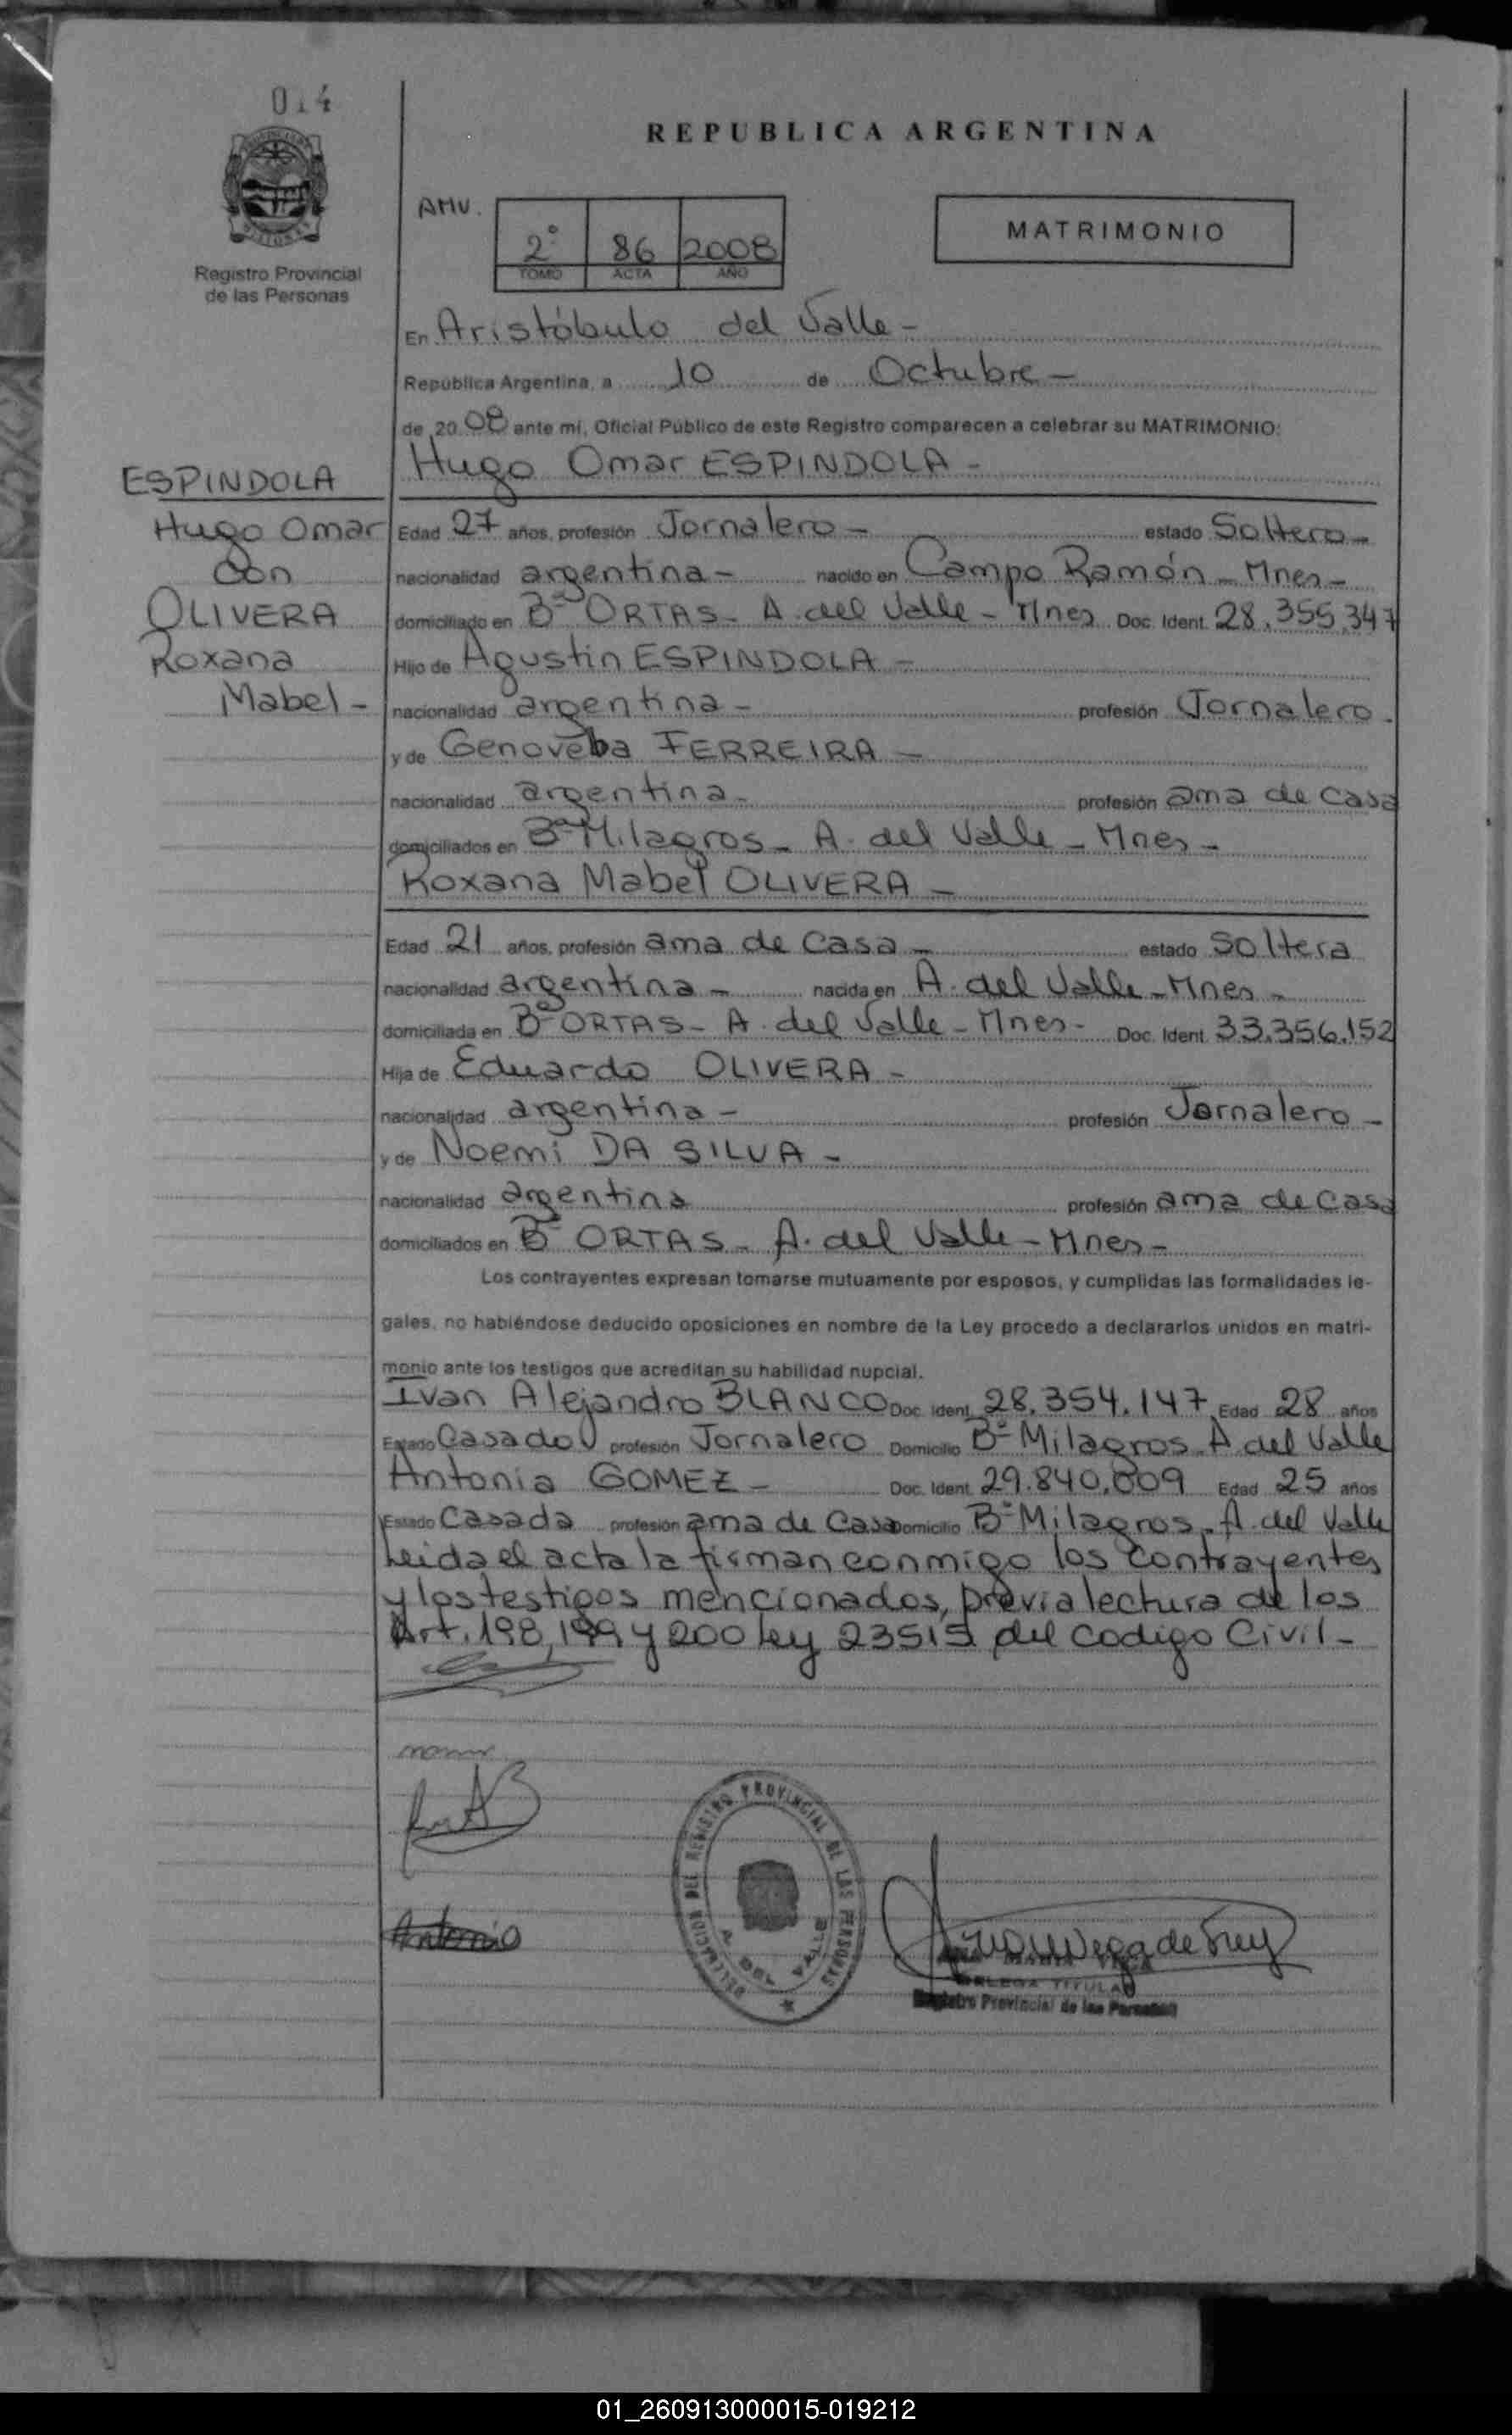 014
REPUBLICA ARGENTINA
Registro Provincial
de las Personas
AMV.
2º 86 2008
TOMO ACTA AÑO
MATRIMONIO
En Aristóbulo del Valle -
República Argentina, a 10 de Octubre -
de 20 08 ante mí, Oficial Público de este Registro comparecen a celebrar su MATRIMONIO:
Hugo Omar ESPINDOLA -
ESPINDOLA
Hugo Omar
Con
OLIVERA
Roxana
Mabel -
Edad 27 años, profesión Jornalero - estado Soltero -
nacionalidad argentina - nacido en Campo Ramón - Mnes -
domiciliado en Bº ORTAS - A. del Valle - Mnes Doc. Ident. 28.355.347
Hijo de Agustin ESPINDOLA -
nacionalidad argentina - profesión Jornalero -
y de Genoveba FERREIRA -
nacionalidad argentina - profesión ama de casa
domiciliados en Bº Milagros - A. del Valle - Mnes -
Roxana Mabel OLIVERA -
Edad 21 años, profesión ama de Casa - estado Soltera
nacionalidad argentina - nacida en A. del Valle - Mnes -
domiciliada en Bº ORTAS - A. del Valle - Mnes - Doc. Ident. 33.356.152
Hija de Eduardo OLIVERA -
nacionalidad argentina - profesión Jornalero -
y de Noemi DA SILVA -
nacionalidad argentina profesión ama de Casa
domiciliados en Bº ORTAS - A. del Valle - Mnes -
Los contrayentes expresan tomarse mutuamente por esposos, y cumplidas las formalidades le-
gales, no habiéndose deducido oposiciones en nombre de la Ley procedo a declararlos unidos en matri-
monio ante los testigos que acreditan su habilidad nupcial.
Ivan Alejandro BLANCO Doc. Ident. 28.354.147 Edad 28 años
Estado Casado profesión Jornalero Domicilio Bº Milagros A del Valle
Antonia GOMEZ - Doc. Ident. 29.840.009 Edad 25 años
Estado Casada profesión ama de Casa Domicilio Bº Milagros - A. del Valle
Leida el acta la firman conmigo los contrayentes
y los testigos mencionados, previa lectura de los
Art. 198, 199 y 200 ley 23515 del codigo Civil -
DELEGACION DEL REGISTRO PROVINCIAL DE LAS PERSONAS
A. DEL VALLE
Vega de Frey
TITULAR
Registro Provincial de las Personas
01_260913000015-019212